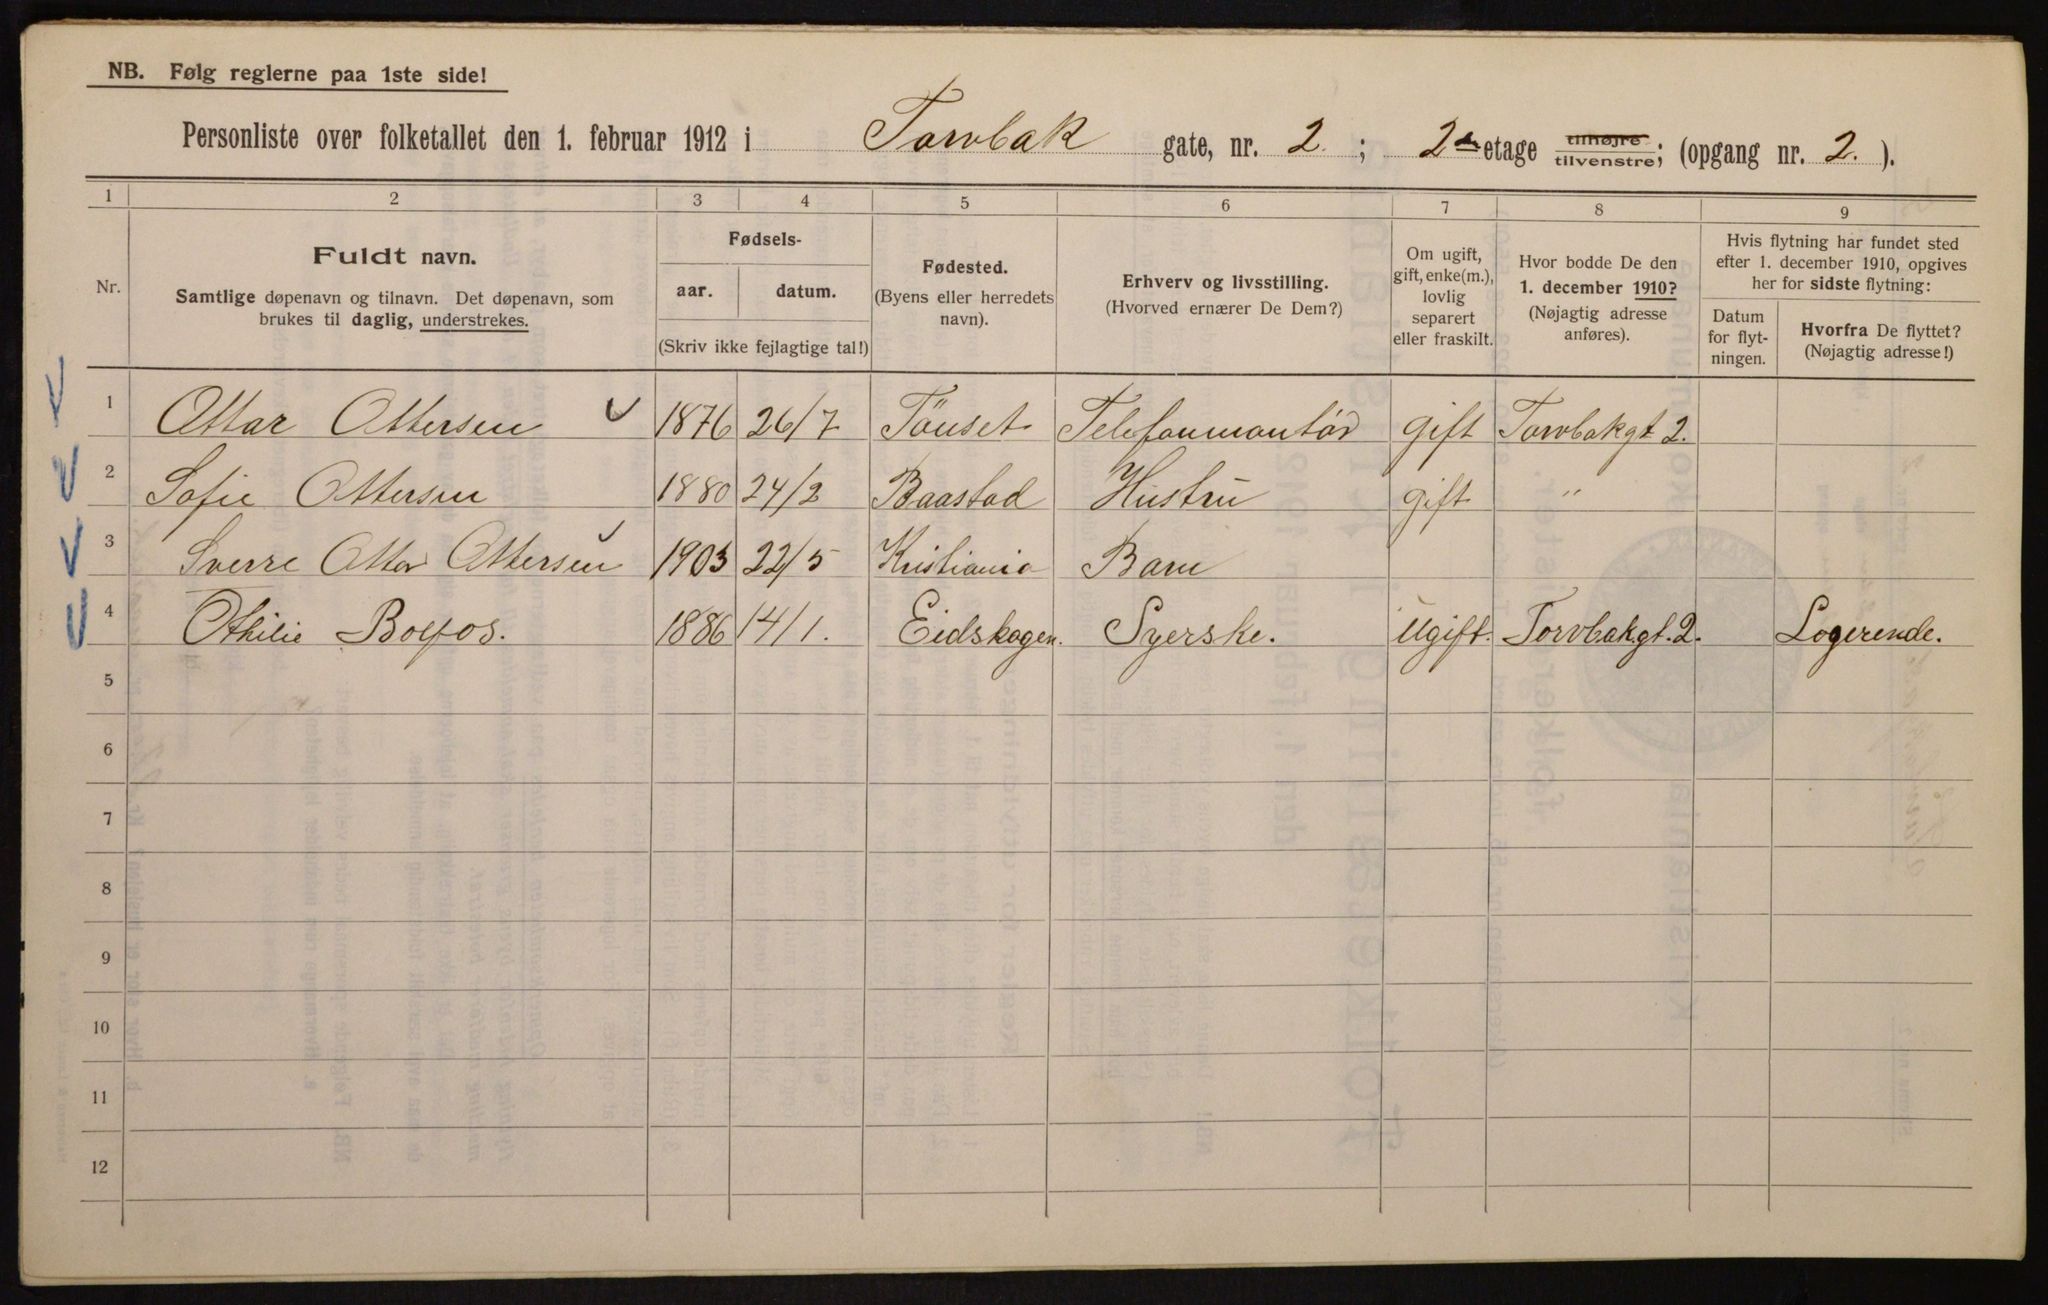 NB. Følg reglerne paa 1ste side!
Personliste over folketallet den 1. februar 1912 i Torvbak gate, nr. 2. ; 2den etage tilhøjre tilvenstre; (opgang nr. 2. ).
1 2 3 4 5 6 7 8 9
Nr.
Fuldt navn.
Samtlige døpenavn og tilnavn. Det døpenavn, som
brukes til daglig, understrekes.
Fødsels-
aar. datum.
(Skriv ikke fejlagtige tal!)
Fødested.
(Byens eller herredets
navn).
Erhverv og livsstilling.
(Hvorved ernærer De Dem?)
Om ugift,
gift, enke(m.),
lovlig
separert
eller fraskilt.
Hvor bodde De den
1. december 1910?
(Nøjagtig adresse
anføres).
Hvis flytning har fundet sted
efter 1. december 1910, opgives
her for sidste flytning:
Datum
for flyt-
ningen.
Hvorfra De flyttet?
(Nøjagtig adresse!)
1 Ottar Ottersen 1876 26/7 Tönset Telefonmontör gift Torvbakgt 2.
2 Sofie Ottersen 1880 24/2 Baastad Hustru gift "
3 Sverre Ottar Ottersen 1903 22/5 Kristiania Barn
4 Othilie Bolfos. 1886 14/1. Eidskogen. Syerske. Ugift. Torvbakgt. 2. Logerende.
5
6
7
8
9
10
11
12